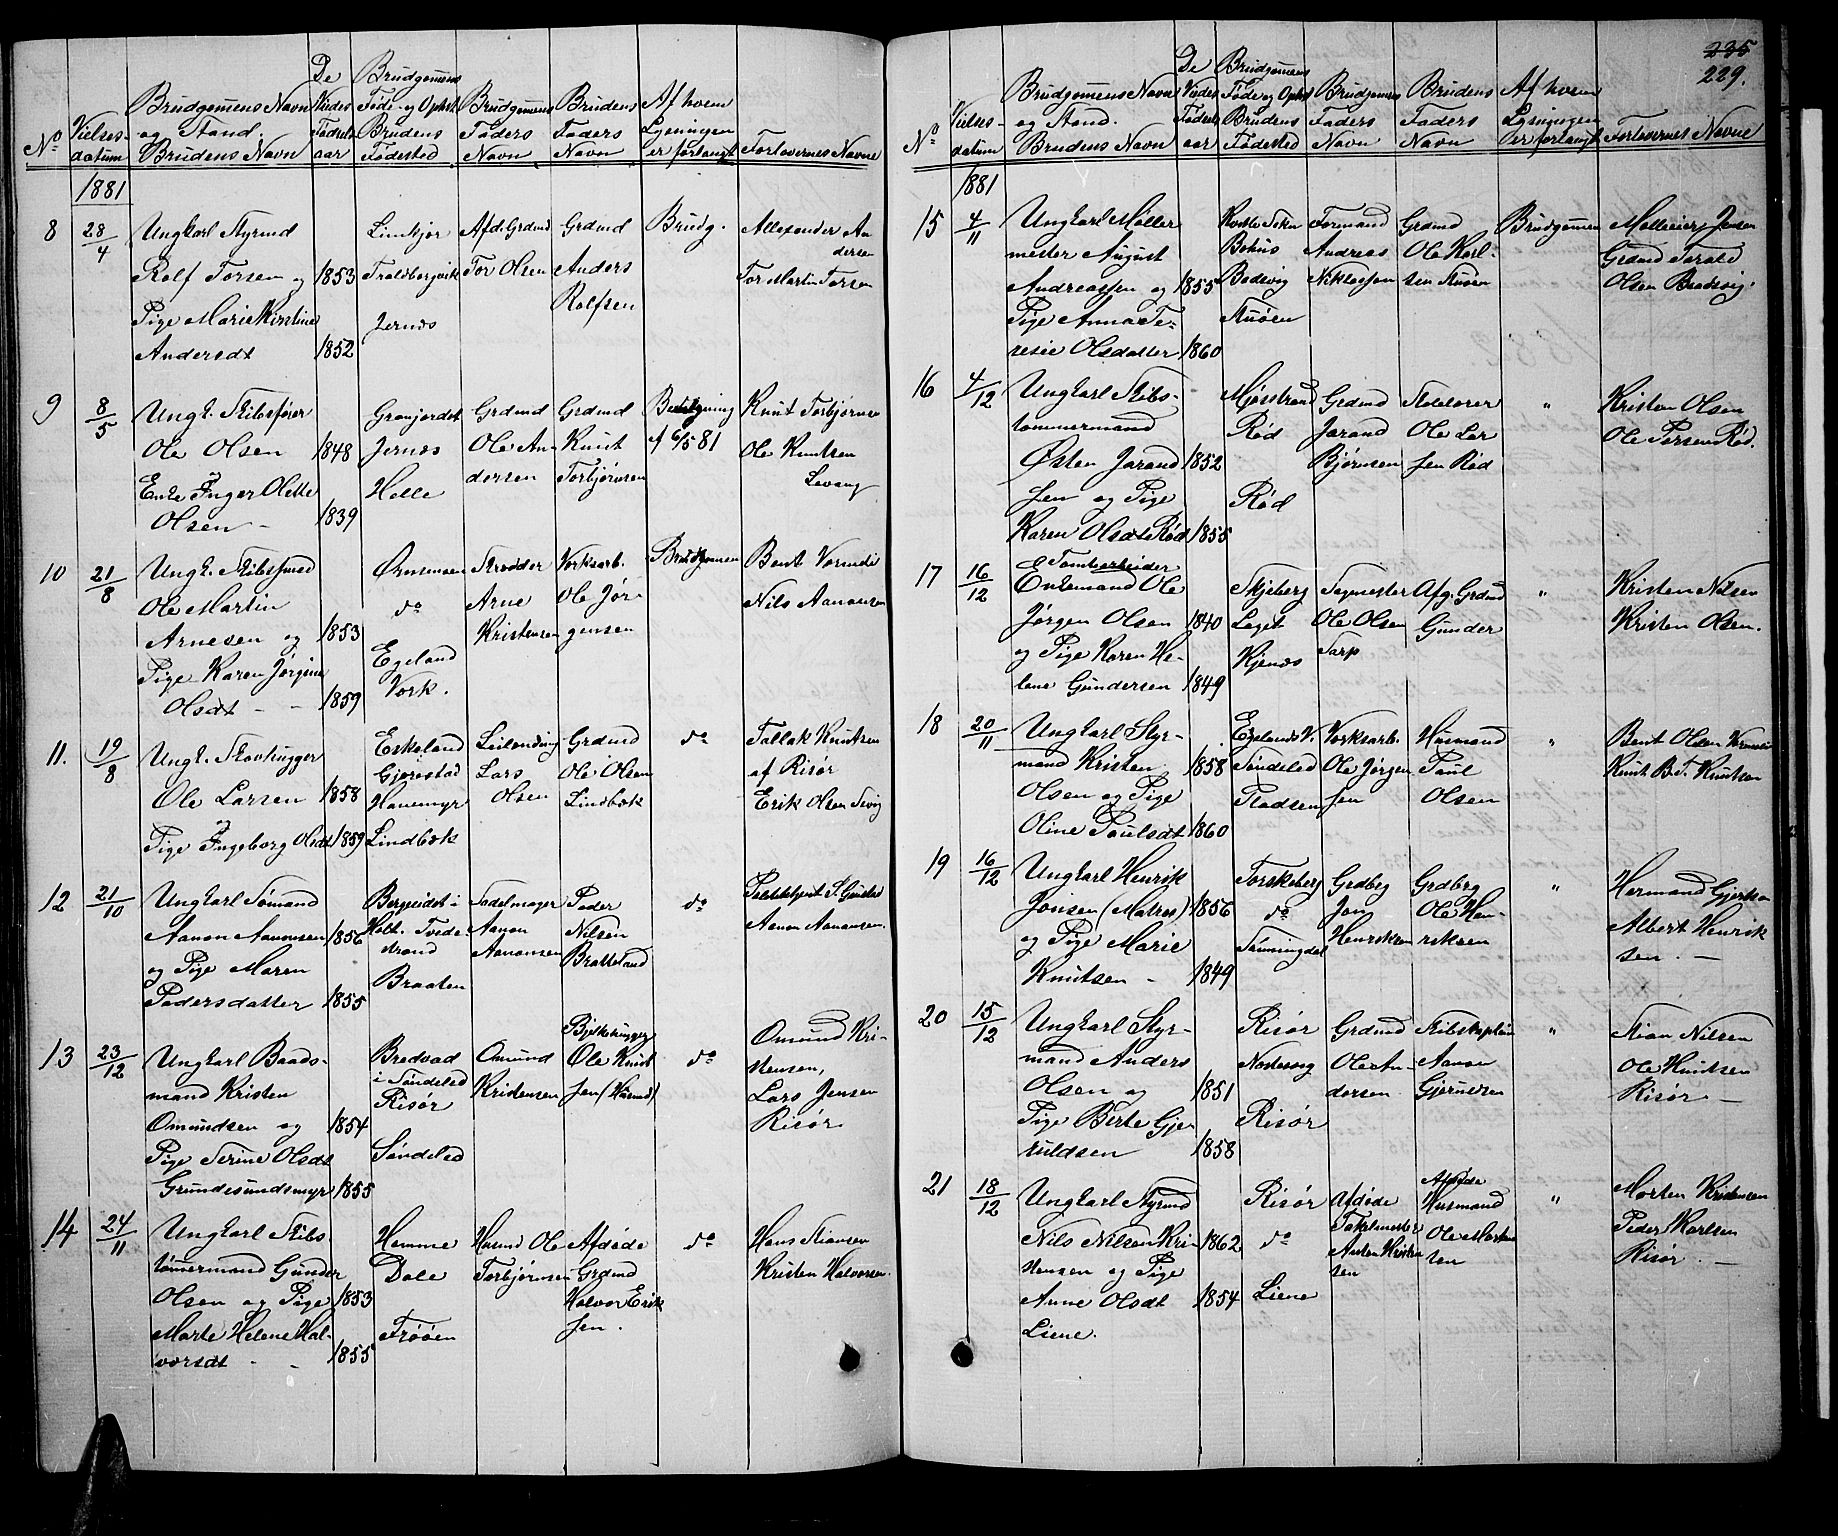 No
Vielses-
datum
Brudgomens Navn
og Stand.
Brudens Navn
De
Viedes
Fødsels
aar
Brudgomens
Føde- og Ophst.
Brudens
Fødested
Brudgomens
Faders
Navn
Brudens
Faders
Navn
Af hvem
Lysningen
er forlangt
Forlovernes Navne
1881
8
28/4
Ungkarl Styrmd
Rolf Torsen og
Pige Marie Kirstine
Andersdt
1853
1852
Limkjær
Jernæs
Afd. Grdmd
Tor Olsen
Grdmd
Anders
Rolfsen
Brudg.
Allexander An
dersen
Tor Martin Torsen
9
8/5
Ungk. Skibsfører
Ole Olsen
Enke Inger Olette
Olsen -
1848
1839
Jernæs
Holle
Grdmd
Ole An
dersen
Grdmd
Knut
Torbjørnsen
6/5 81
Knut Torbjørnsen
Ole Knutsen
Levang
10
21/8
Ungk. Skibsfmd
Ole Martin
Arnesen og
Pige Karen Jørgine
Olsdt - -
1853
1859
do
Egeland
Værk.
Skrædder
Arne
Kristensen
Værksarb.
Ole Jør-
gensen
Brudgomen
Bent Værmlie
Nils Aanonsen
11.
19/8
Ungk. Skovhugger
Ole Larsen
Pige Ingeborg Olsdt
1858
1859
Eskeland
Gjerestad
Hanemyr
Lindbæk
Leilænding
Lars
Olsen
Grdmd
Ole Olsen
Lindbæk
do
Tallak Knutsen
af Risør
Erik Olsen Sevig
12
21/10
Ungkarl Sømand
Aanon Aanonsen
og Pige Maren
Pedersdatter
1856
1855
Holt. Tvede-
strand
Braaten
Sadelmager
Aanon
Aanonsen
Peder
Nilsen
Brattland
do
Aanon Aanonsen.
13
23/12
Ungkarl Baads-
mand Kristen
Omundsen og
Pige Serine Olsdt
Grundesundsmyr
1854
1855
Bredvad
i Søndeled
Risør
Søndeled
Omund
Kristensen
Bjelkehugger
Ole Knut
sen (Husmd)
do
Omund Kri-
stensen,
Lars Jensen
Risør
14
24/11
Ungkarl Skibs
tømmermand Gunder
Olsen og Pige
Marte Helene Hal-
vorsdt - -
1853
1855
Hemme
Dale
Frøøen
Husmd Ole
Torbjørnsen
Afdøde
Grdmd
Halvor Erik
sen.
do
Hans Stiansen
Kristen Halvorsen.
235
229.
No
Vielses-
datum
Brudgomens Navn
og Stand.
Brudens Navn
De
Viedes
Fødsels
aar
Brudgomens
Føde og Ophst
Brudens
Fødested
Brudgomens
Faders
Navn
Brudens
Faders
Navn
Af hvem
Lysningen
er forlangt
Forlovernes Navne
1881
15
4/11
Ungkarl Møller
mester August
Andreassen og
Pige Anna Te-
resie Olsdatter
1855
1860
Bohus
Bodsvig
Stuøen
Formand
Andreas
Niklassen
Grdmd
Ole Karl-
sen Stuøen
Brudgomen
Mølleeier Jensen
Grdmd Tarald
Olsen Bradsvig.
16
4/12
Ungkarl Skibs-
tømmermand
Østen Jarand
sen og Pige
Karen Olsdt Rød
1852
1855
Mjøsstrand
Rød
Rød
Grdmd
Jarand
Bjørnsen
Ole Lar
sen Rød
"
Kristen Olsen
Ole Larsen Rød.
17
16/12
Tomtearbeider
Enkemand Ole
Jørgen Olsen
og Pige Karen He-
lene Gundersen
1840
1849
Skjeberg
Leget
Kjenæs
Sagmester
Ole Olsen
Sarp
Afg. Grdmd
Gunder
"
Kristen Nilsen
Kristen Olsen.
18
20/11
Ungkarl Styr-
mand Kristen
Olsen og Pige
Oline Paulsdt
1858
1860
Egelands V.
Søndeled
Pladsen
Værksarb.
Ole Jørgen
sen
Husmand
Paul
Olsen
"
Bent Olsen Værmlie
Knut B. T. Knutsen
19
16/12
Ungkarl Henrik
Jonsen (Matros)
og Pige Marie
Knutsen -
1856
1849
Torskeberg
do
Sanningdal
Grdbrg
Jon
Henriksen
Grdbrg
Ole Hen-
riksen
"
Hermand Gjertsen
Albert Henrik
sen. -
20
15/12
Ungkarl Styr-
mand Anders
Olsen og
Pige Berte Gje-
ruldsen
1851
1858
Risør
Risør
Grdmd
Ole An-
dersen
Skibskaptein
Aanon
"
Stian Nilsen
Ole Knutsen
Risør -
21
18/12
Ungkarl Styrmd
Nils Nilsen Kri-
stensen og Pige
Anne Olsdt
Liene.
1862
1854
Risør
do
Liene
Afdøde
Takelmester
Anton Kristen
sen
Afdøde
Husmand
Ole Morten
sen
"
Morten Kristensen
Peder Karlsen
Risør. -